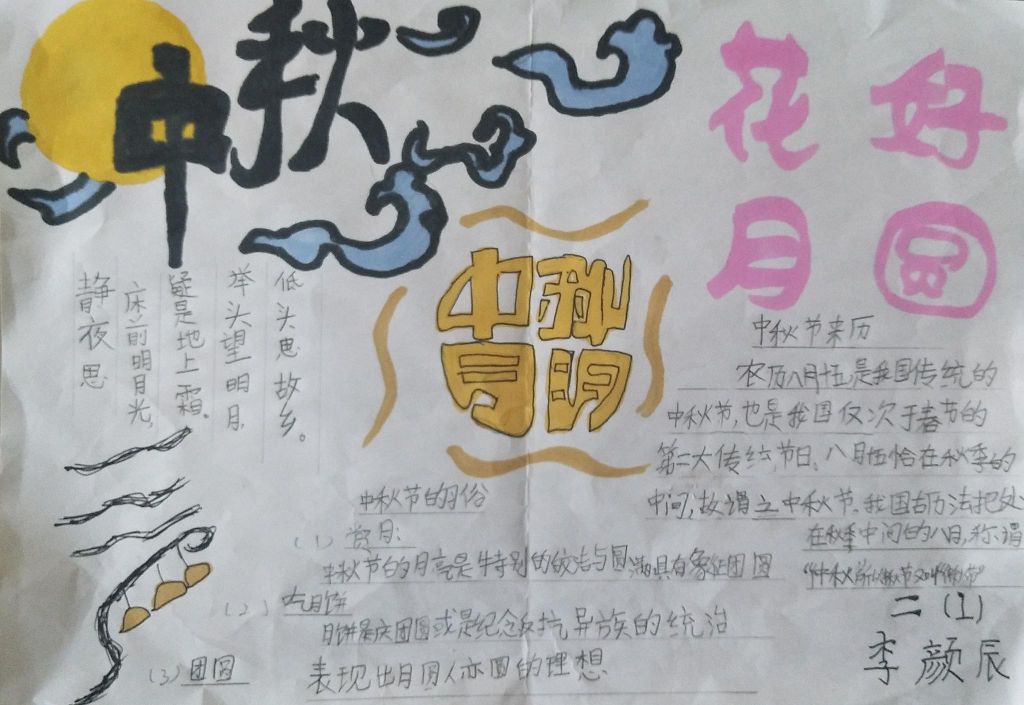 中秋
花好
月圆
中秋
静夜思
床前明月光,
疑是地上霜。
举头望明月,
低头思故乡。
中秋节来历
农历八月十五是我国传统的
中秋节,也是我国仅次于春节的
第二大传统节日、八月十五恰在秋季的
中间,故谓之中秋节.我国古历法把处
在秋季中间的八月,称谓
"仲秋"所以中秋节又叫"仲秋"
中秋节的习俗
(1)赏月:
中秋节的月亮是特别的皎洁与圆满具有象征团圆
(2)吃月饼
月饼是庆团圆或是纪念反抗异族的统治
(3)团圆
表现出月圆人亦圆的理想
二(1)
李颜辰